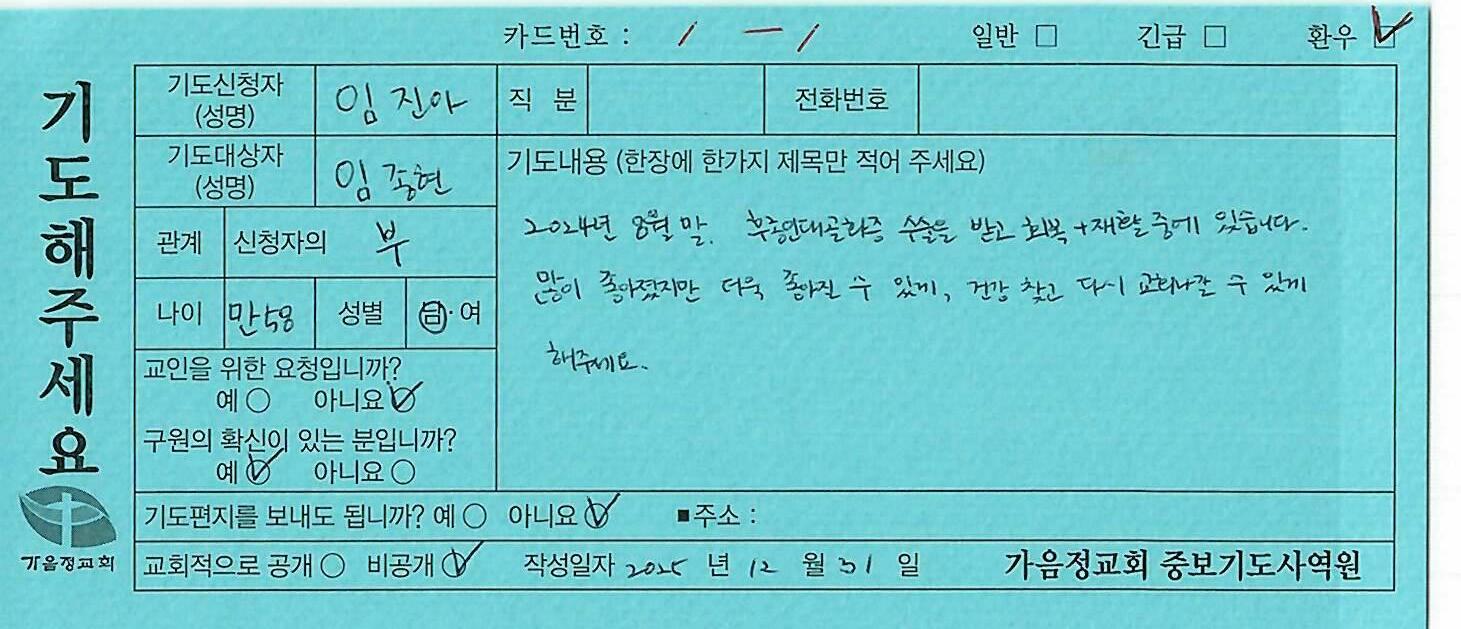 카드번호 : 1 - 1 일반 □ 긴급 □ 환우 ☑
기도해주세요
기도신청자 (성명) 임진아 직 분 전화번호
기도대상자 (성명) 임종현
기도내용 (한장에 한가지 제목만 적어 주세요)
2024년 8월 말. 후종인대골화증 수술을 받고 회복+재활중에 있습니다.
많이 좋아졌지만 더욱 좋아질 수 있게, 건강 찾고 다시 교회나갈 수 있게
해주세요.
관계 신청자의 부
나이 만58 성별 남·여
교인을 위한 요청입니까?
예 ○ 아니요 ☑
구원의 확신이 있는 분입니까?
예 ☑ 아니요 ○
기도편지를 보내도 됩니까? 예 ○ 아니요 ☑ ■주소 :
교회적으로 공개 ○ 비공개 ☑ 작성일자 2025 년 12 월 31 일 가음정교회 중보기도사역원
가음정교회